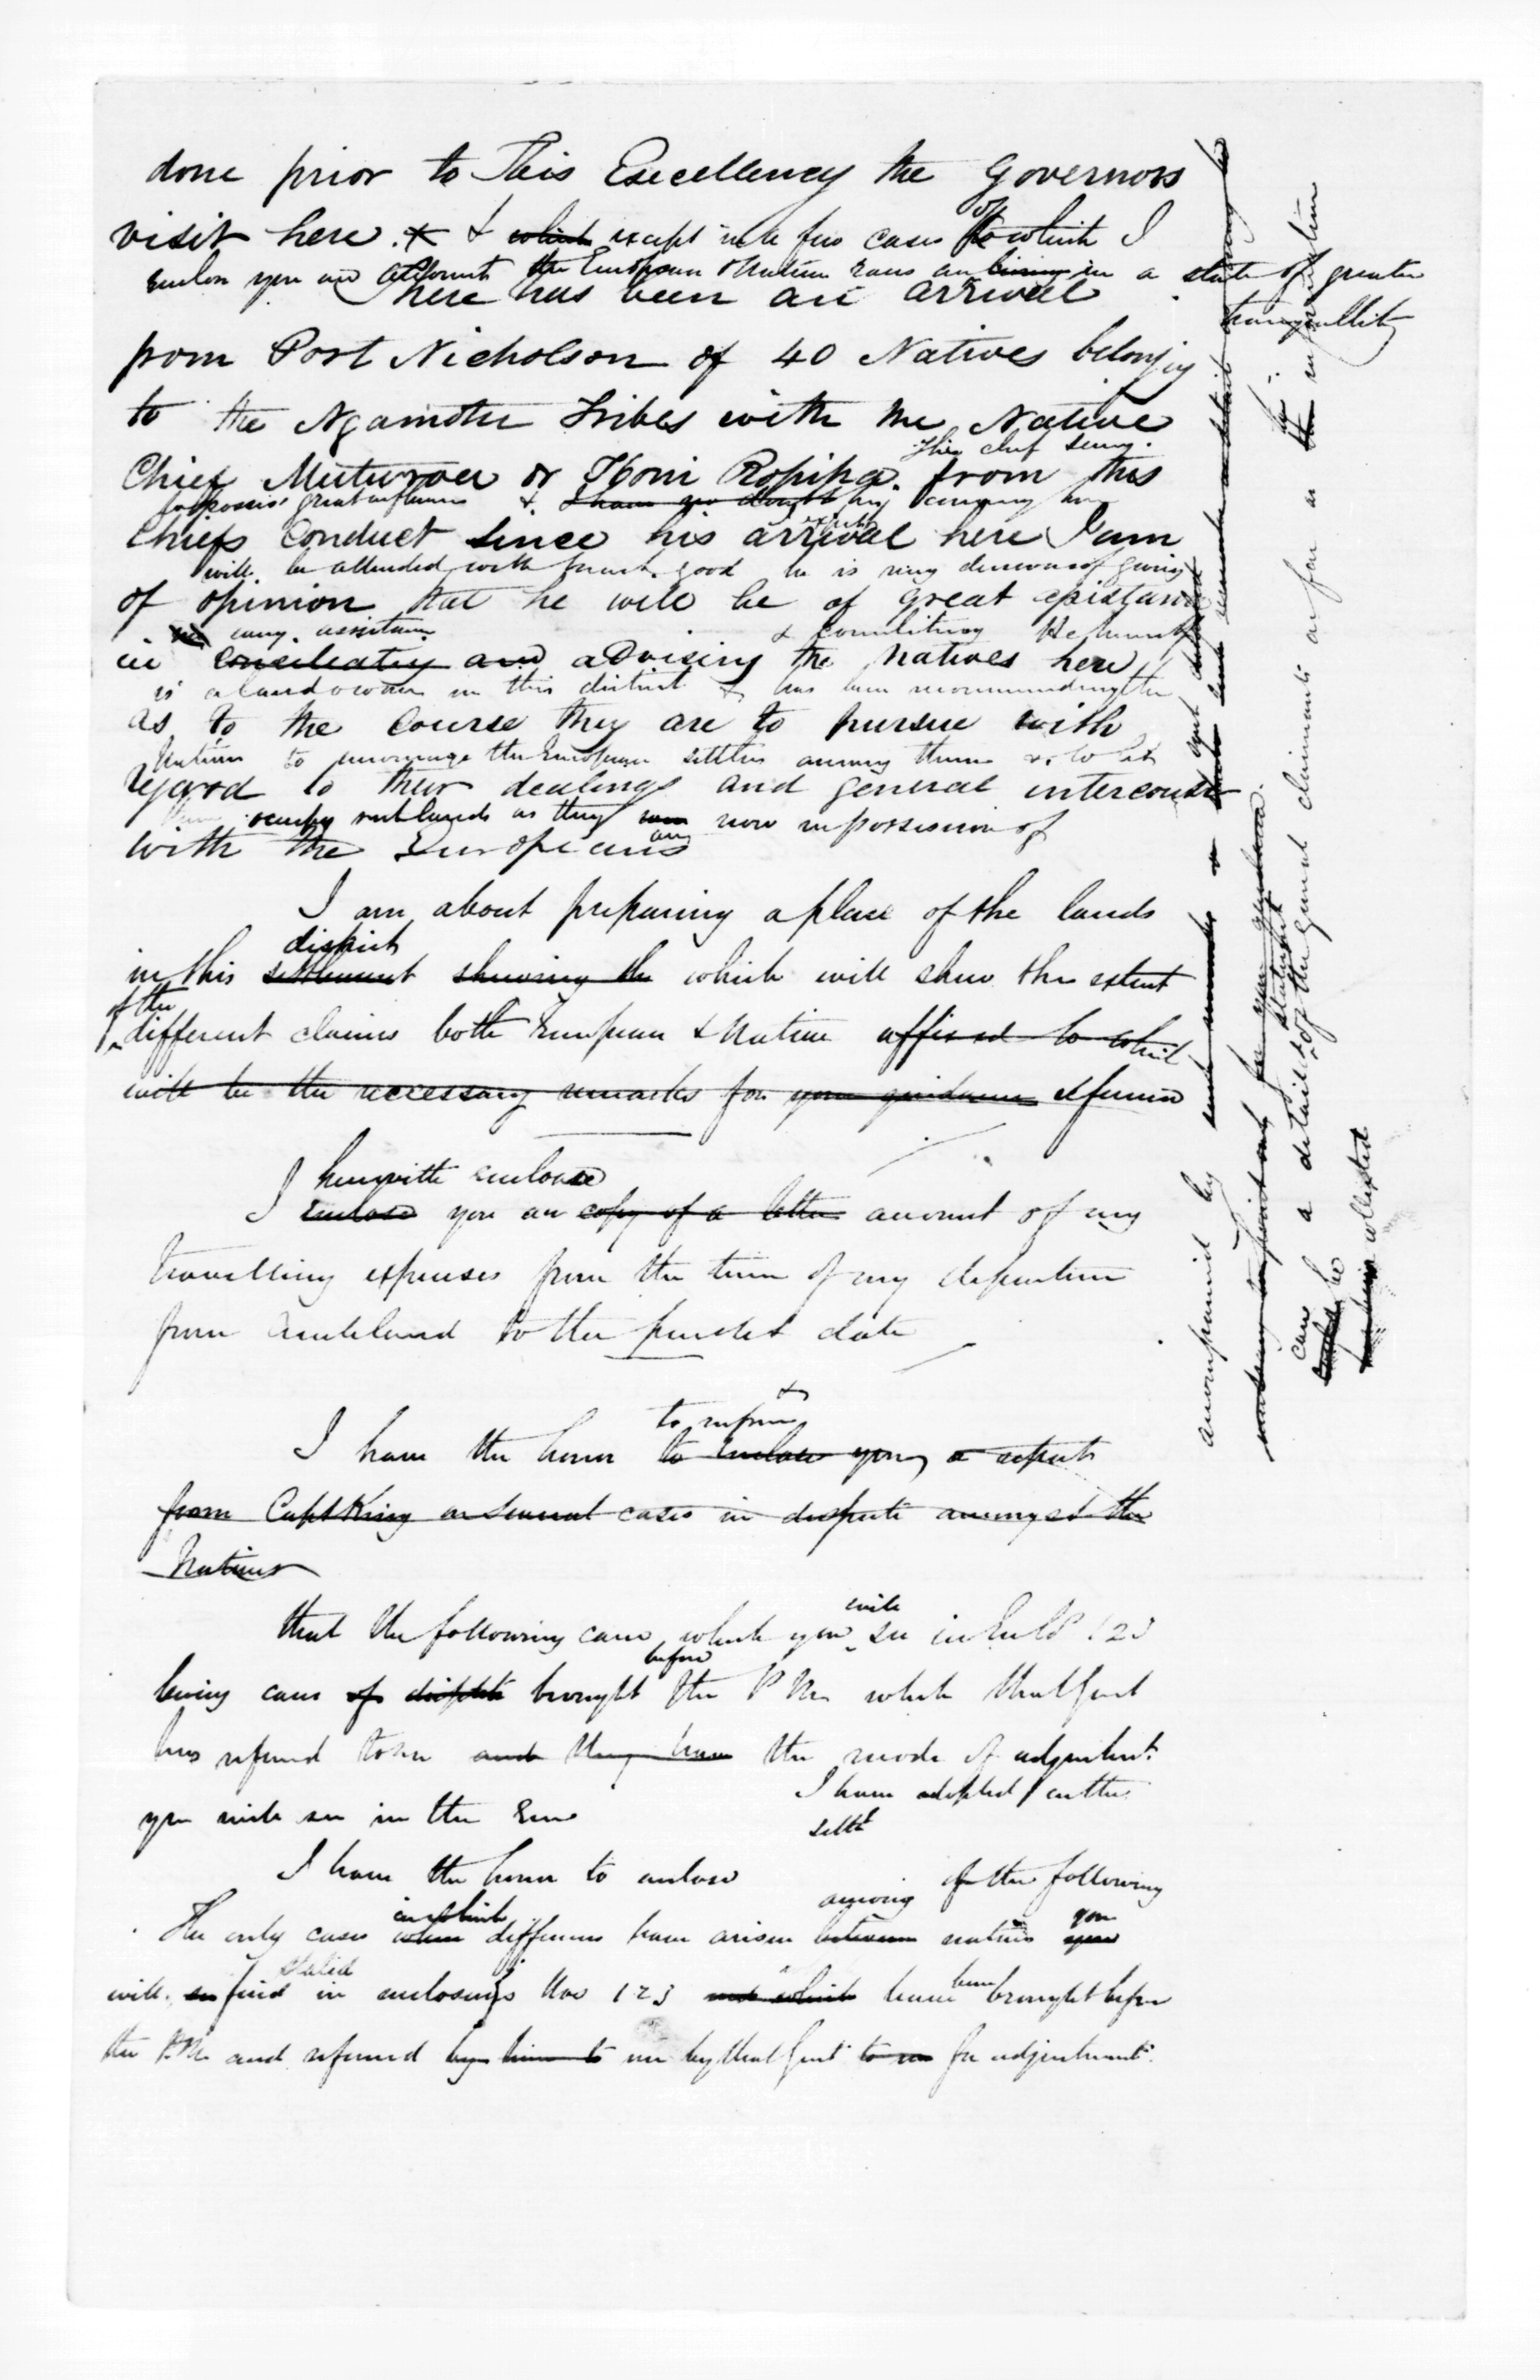 done prior to His Excellency the Governors
visit here. & which except in the few cases of to which I
enclose you an account the European & Native races are living in a state of greater
tranquillity
There has been an arrival
from Port Nicholson of 40 Natives belonging
to the Ngamotu Tribes with the Native
This chief seems
Chief Muturoa or Honi Ropiha. from this
to possess great influence & I have no doubt his coming here
Chiefs Conduct since his arrival here I am
will be attended with much good he is very desirous of giving
of opinion that he will be of great assistance
any assistance & conciliating He himself
in conciliating and advising the Natives here
is a landowner in this district & has been recommending the
as to the Course they are to pursue with
Natives to encourage the European settlers among them & to let
regard to their dealings and general intercourse
them occupy such lands as they are now in possession of
with the Europeans
I am about preparing a place of the lands
district
in this settlement shewing the which will shew the extent
of the
different claims both European & Native affixed to which
will be the necessary remarks for your guidance reference
herewith enclose
I enclose you an copy of a letter account of my
travelling expenses from the time of my departure
from Auckland to the present date
to inform
I have the honor to enclose you, a report
from Capt King on several cases in dispute amongst the
Natives
that the following cases which you will see in 1 2 3
before
being cases of dispute brought the P M which that Gent
has referred to me and they have the mode of adjustment
I have adopted / in the
you will see in the Enc
settt
I have the honor to enclose
among of the following
in which
The only cases where differences have arisen between natives you
stated
will find in enclosures Nos 1 2 3 and which have been brought before
the P.M. and referred by him to me by that Gent to me for adjustment.
accompanied by
for your guidance.
can be a detailed statement of the General claimants as far as
collected